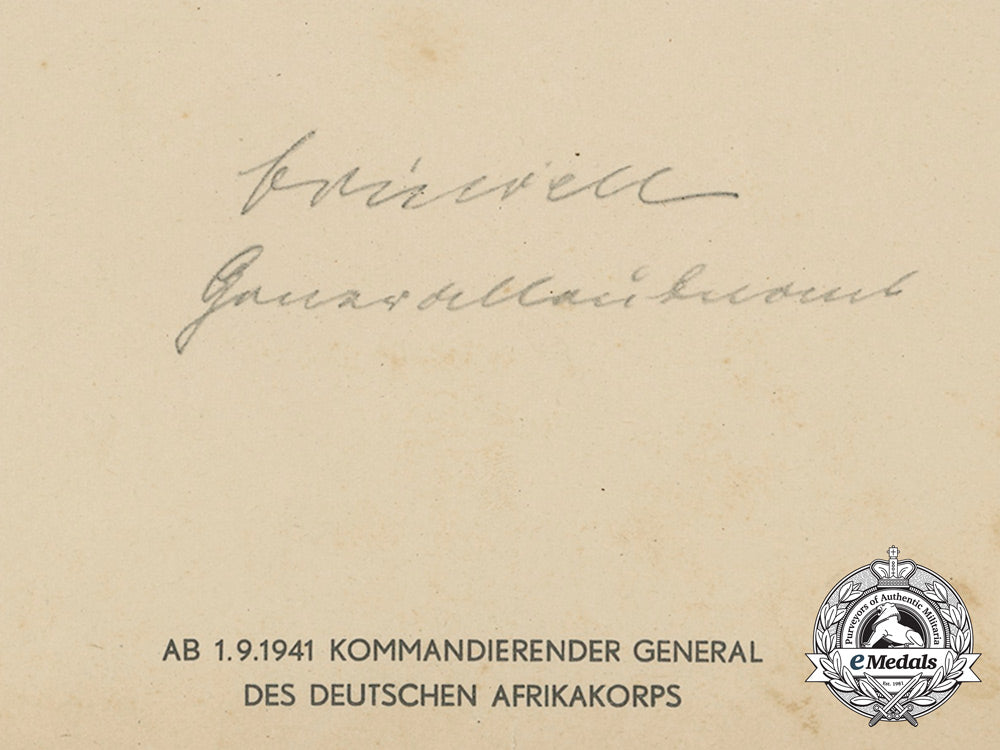 Crüwell
Generalleutnant
AB 1.9.1941 KOMMANDIERENDER GENERAL
DES DEUTSCHEN AFRIKAKORPS
Purveyors of Authentic Militaria
eMedals
Est. 1981